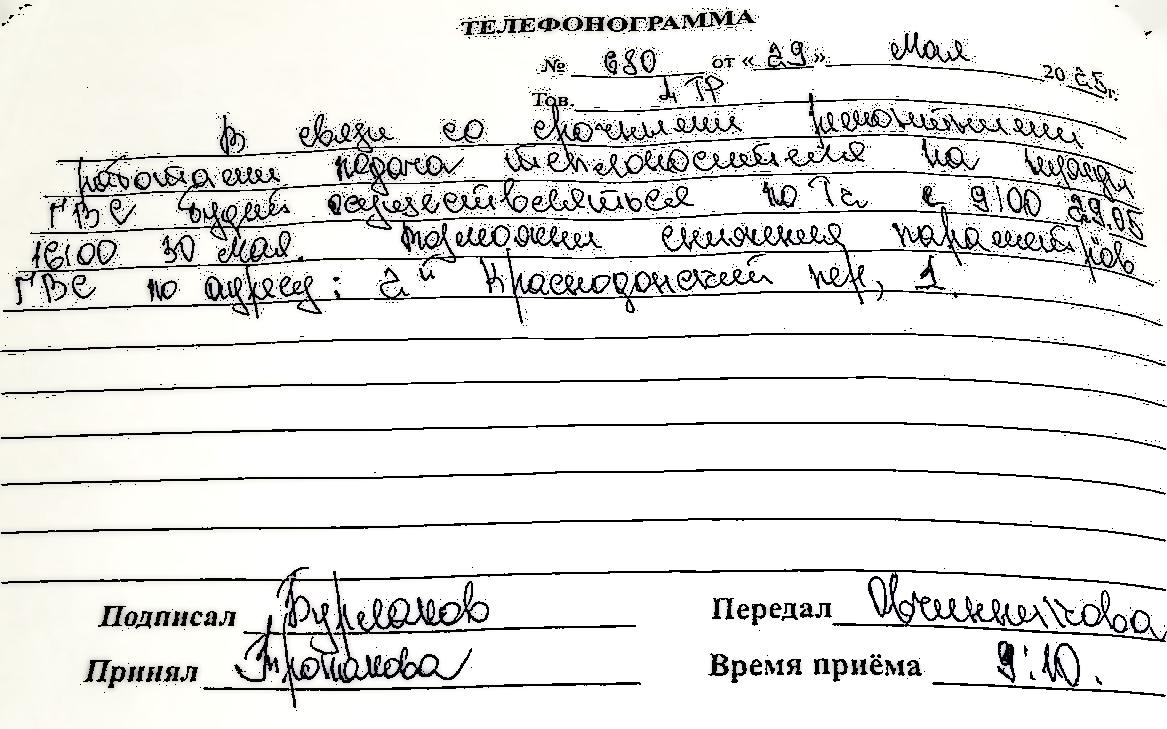 ТЕЛЕФОНОГРАММА
№ 680 от « 29 » Мая 2025г.
Тов. 4 ТР
В связи со срочными ремонтными
работами подача теплоносителя на нужды
ГВС будет осуществляться по Т2 с 9:00 29.05
16:00 30 мая. возможны снижения параметров
ГВС по адресу: 2й Краснодонский пер, 1.
Подписал Бурлаков Передал Овчинникова
Принял Время приёма 9:10.